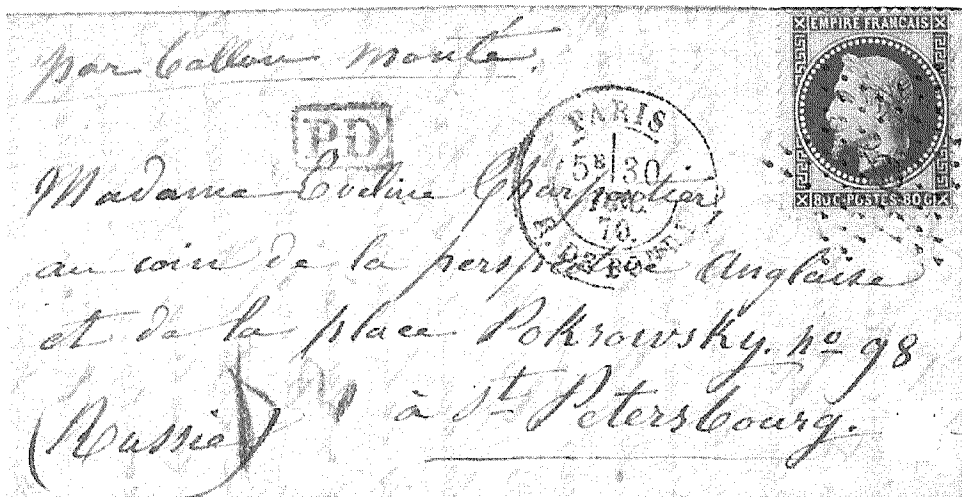 par ballon monté.
EMPIRE FRANÇAIS
80.C-POSTES-80.C
PD
PARIS
5E 30
DEC.
70
Madame Eveline Charpentier
au coin de la perspective Anglaise
et de la place Pokrowsky. no 98
à St. Petersbourg.
(Russie)